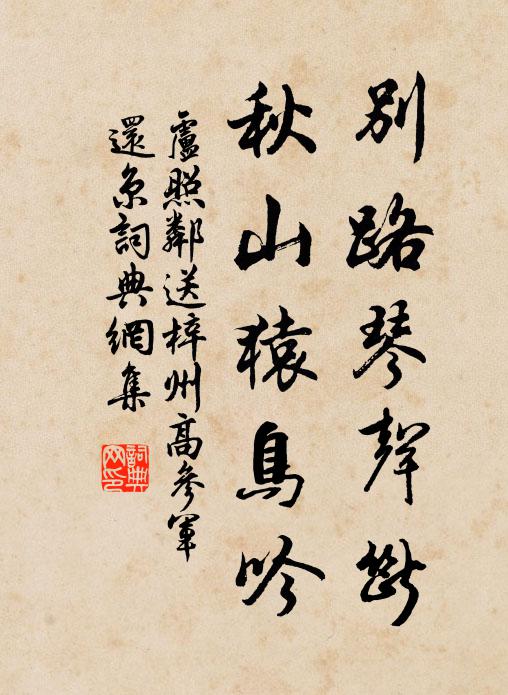 別路琴聲斷
秋山猿鳥吟
盧照鄰送梓州高參軍
還京詞典網集
詞典
网印